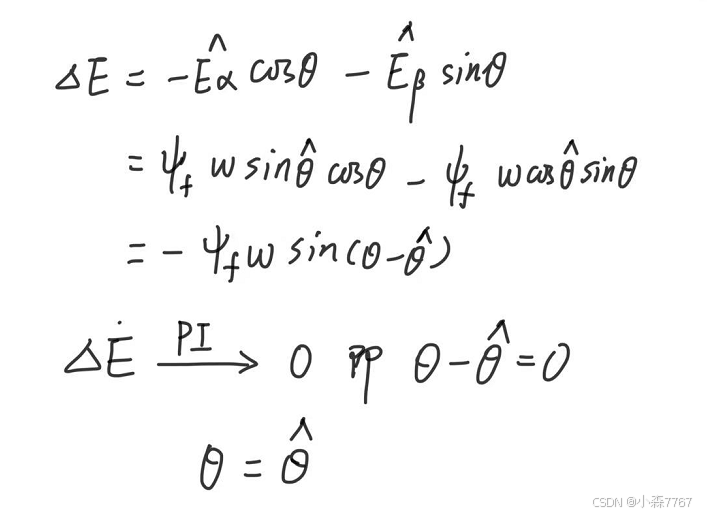 ΔE = -Êα cosθ - Êβ sinθ
= ψf w sinθ̂ cosθ - ψf w cosθ̂ sinθ
= - ψf w sin(θ-θ̂)
ΔĖ PI→ 0 即 θ-θ̂=0
θ = θ̂
CSDN @小森7767